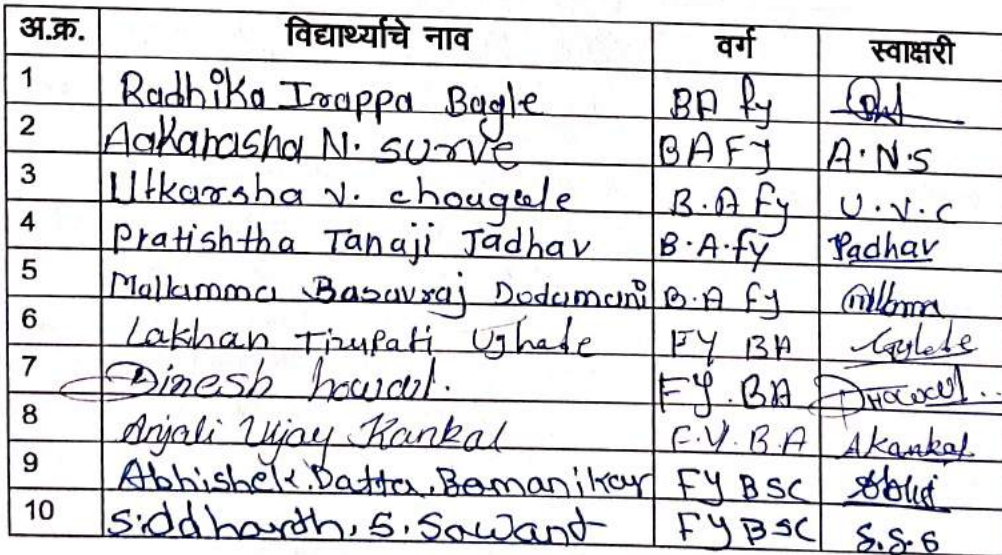 अ.क्र. विद्यार्थ्याचे नाव वर्ग स्वाक्षरी
1 Radhika Irappa Bagle BA fy
2 Aakarasha N. surve BAFY A.N.S
3 Utkarsha v. chougule B.A Fy U.V.C
4 Pratishtha Tanaji Jadhav B.A.fy Padhav
5 Mallamma Basavraj Dodamani B.A fy
6 Lakhan Tirupati Ughade FY BA
7 Dinesh hawal. FY.BA
8 Anjali Vijay Kankal F.Y.B.A AKankal
9 Abhishek.Datta.Bamanikar FY BSC
10 Siddharth.S.Sawant FY BSC S.S.S